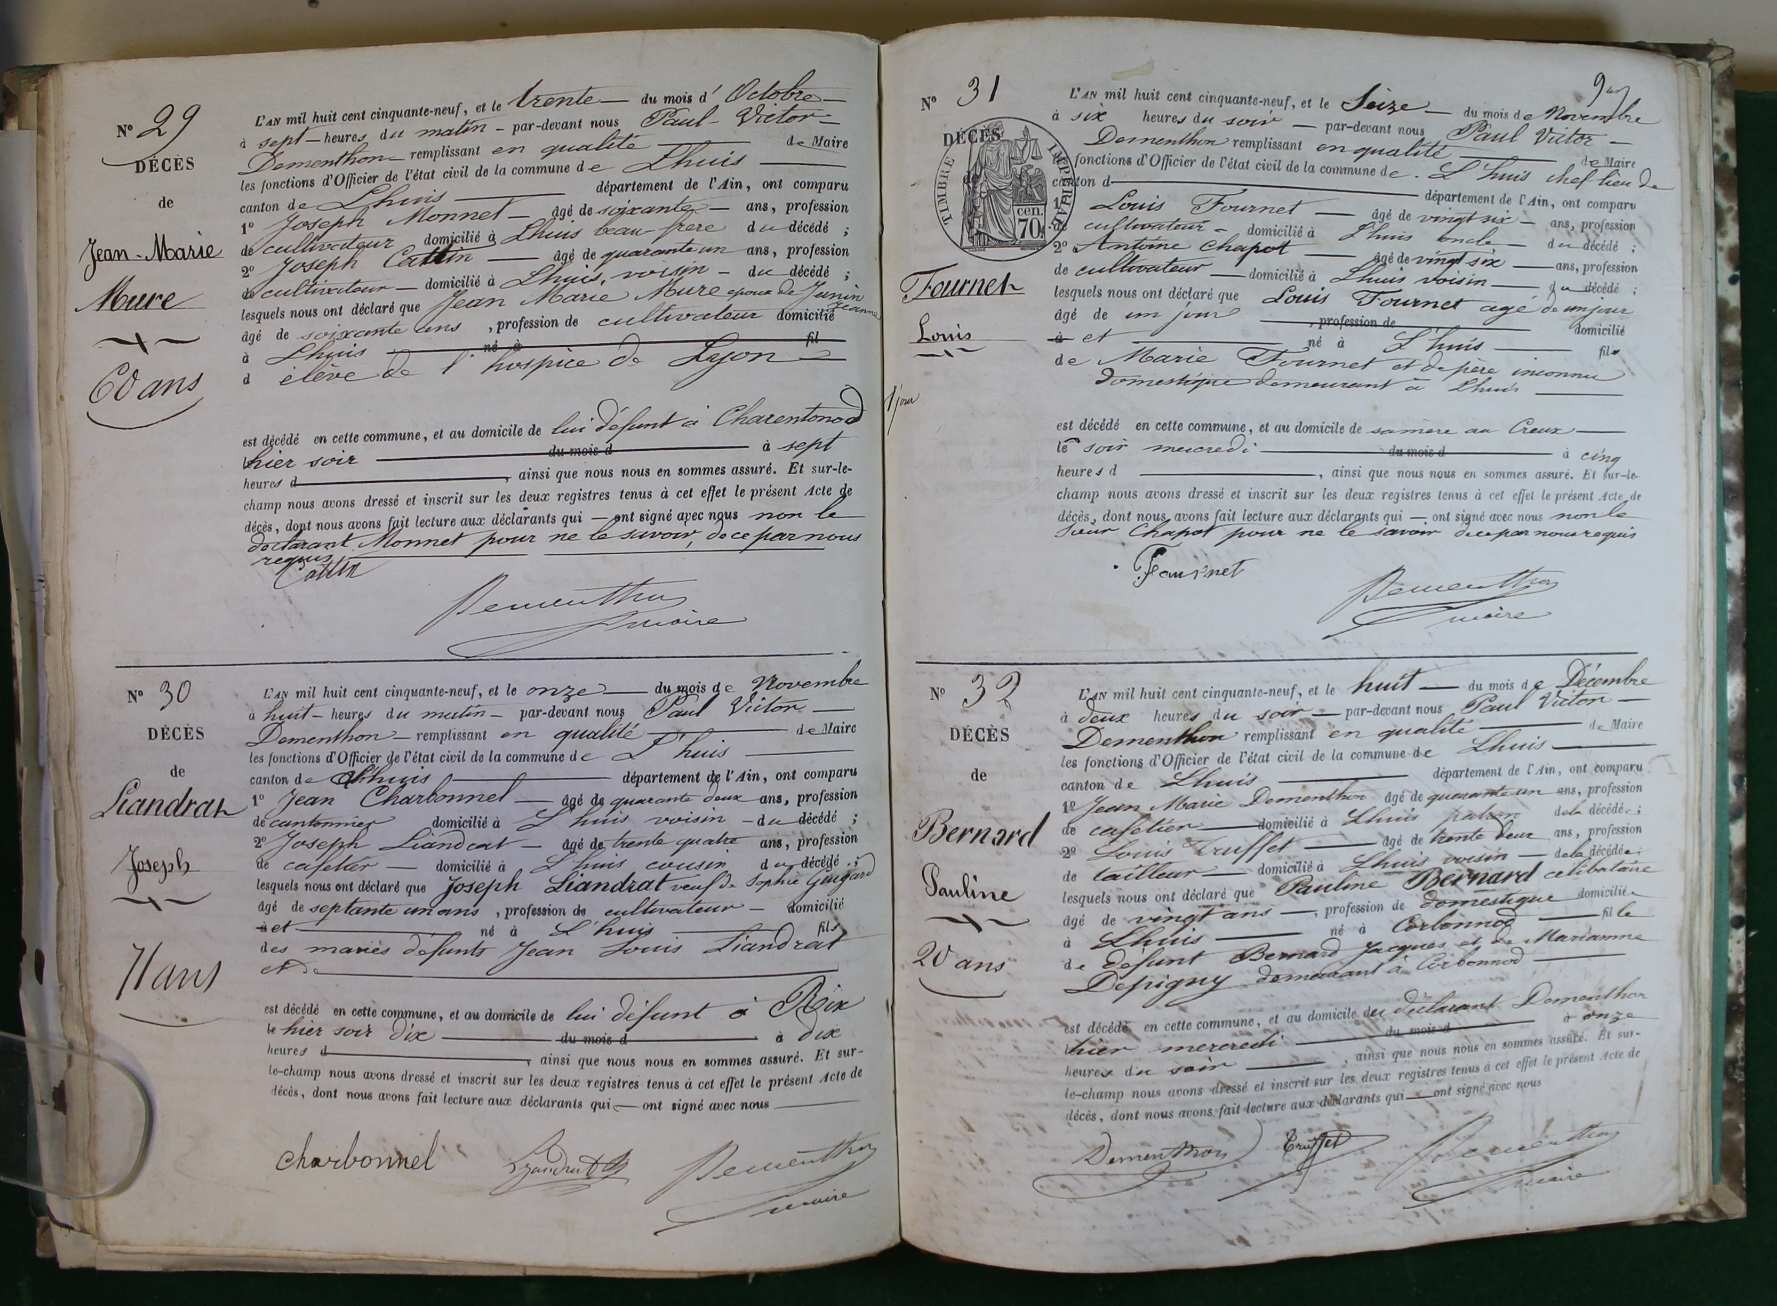 Nº 29
DÉCÈS
de
Jean-Marie
Mure
60 ans
L'AN mil huit cent cinquante-neuf, et le trente du mois d'Octobre
à sept heures du matin par-devant nous Paul Victor
Dementhon remplissant en qualité de Maire
les fonctions d'Officier de l'état civil de la commune de Lhuis
canton de Lhuis département de l'Ain, ont comparu
1º Joseph Monnet âgé de soixante ans, profession
de cultivateur domicilié à Lhuis beau-frère du décédé ;
2º Joseph Cattin âgé de quarante un ans, profession
de cultivateur domicilié à Lhuis, voisin du décédé ;
lesquels nous ont déclaré que Jean Marie Mure epoux de Junin Jeanne
âgé de soixante ans , profession de cultivateur domicilié
à Lhuis né à fil
d élève de l'hospice de Lyon
est décédé en cette commune, et au domicile de lui défunt à Charentonod
hier soir du mois d à sept
heures d , ainsi que nous nous en sommes assuré. Et sur-le-
champ nous avons dressé et inscrit sur les deux registres tenus à cet effet le présent Acte de
décès, dont nous avons fait lecture aux déclarants qui ont signé avec nous non le
déclarant Monnet pour ne le savoir, de ce par nous
requis
Cattin
Dementhon
maire
Nº 30
DÉCÈS
de
Liandrat
Joseph
71 ans
L'AN mil huit cent cinquante-neuf, et le onze du mois de Novembre
à huit heures du matin par-devant nous Paul Victor
Dementhon remplissant en qualité de Maire
les fonctions d'Officier de l'état civil de la commune de L'huis
canton de Lhuis département de l'Ain, ont comparu
1º Jean Charbonnel âgé de quarante deux ans, profession
de cantonnier domicilié à L'huis voisin du décédé ;
2º Joseph Liandrat âgé de trente quatre ans, profession
de cafetier domicilié à L'huis cousin du décédé ;
lesquels nous ont déclaré que Joseph Liandrat veuf de Sophie
âgé de septante un ans , profession de cultivateur domicilié
à et né à L'huis fils
des mariés défunts Jean Louis Liandrat
et de
est décédé en cette commune, et au domicile de lui défunt à Rix
le hier soir dix du mois d à dix
heures d , ainsi que nous nous en sommes assuré. Et sur-
le-champ nous avons dressé et inscrit sur les deux registres tenus à cet effet le présent Acte de
décès, dont nous avons fait lecture aux déclarants qui ont signé avec nous
charbonnel
Lyandrat
Dementhon
maire
Nº 31
DÉCÈS
TIMBRE IMPÉRIAL
70 cen.
Fournet
Louis
1 jour
L'AN mil huit cent cinquante-neuf, et le Seize du mois de Novembre
à six heures du soir par-devant nous Paul Victor
Dementhon remplissant en qualité de Maire
fonctions d'Officier de l'état civil de la commune de L'huis chef lieu de
canton d département de l'Ain, ont comparu
1º Louis Fournet âgé de vingt six ans, profession
cultivateur domicilié à Lhuis oncle du décédé ;
2º Antoine Chapot âgé de vingt six ans, profession
de cultivateur domicilié à Lhuis voisin du décédé ;
lesquels nous ont déclaré que Louis Fournet agé de un jour
âgé de un jour , profession de domicilié
à et né à L'huis fils
de Marie Fournet et de père inconnu
domestique demeurant à Lhuis
est décédé en cette commune, et au domicile de sa mère au Creux
le soir mercredi du mois d à cinq
heures d , ainsi que nous nous en sommes assuré. Et sur-le-
champ nous avons dressé et inscrit sur les deux registres tenus à cet effet le présent Acte de
décès, dont nous avons fait lecture aux déclarants qui ont signé avec nous non le
Sieur Chapot pour ne le savoir de ce par nous requis
Fournet
Dementhon
maire
Nº 32
DÉCÈS
de
Bernard
Pauline
20 ans
L'AN mil huit cent cinquante-neuf, et le huit du mois de Décembre
à deux heures du soir par-devant nous Paul Victor
Dementhon remplissant en qualité de Maire
les fonctions d'Officier de l'état civil de la commune de Lhuis
canton de Lhuis département de l'Ain, ont comparu
1º Jean Marie Dementhon âgé de quarante un ans, profession
de cafetier domicilié à Lhuis patron de la décédée ;
2º Louis Truffet âgé de trente deux ans, profession
de tailleur domicilié à Lhuis voisin de la décédée ;
lesquels nous ont déclaré que Pauline Bernard celibataire
âgé de vingt ans , profession de domestique domiciliée
à Lhuis né à Corbonnod fille
de défunt Bernard Jacques et de Marianne
Depigny demeurant à Corbonnod
est décédé en cette commune, et au domicile du déclarant Dementhon
hier mercredi du mois d à onze
heures du soir , ainsi que nous nous en sommes assuré. Et sur-
le-champ nous avons dressé et inscrit sur les deux registres tenus à cet effet le présent Acte de
décès, dont nous avons fait lecture aux déclarants qui ont signé avec nous
Dementhon
Truffet
Dementhon
maire